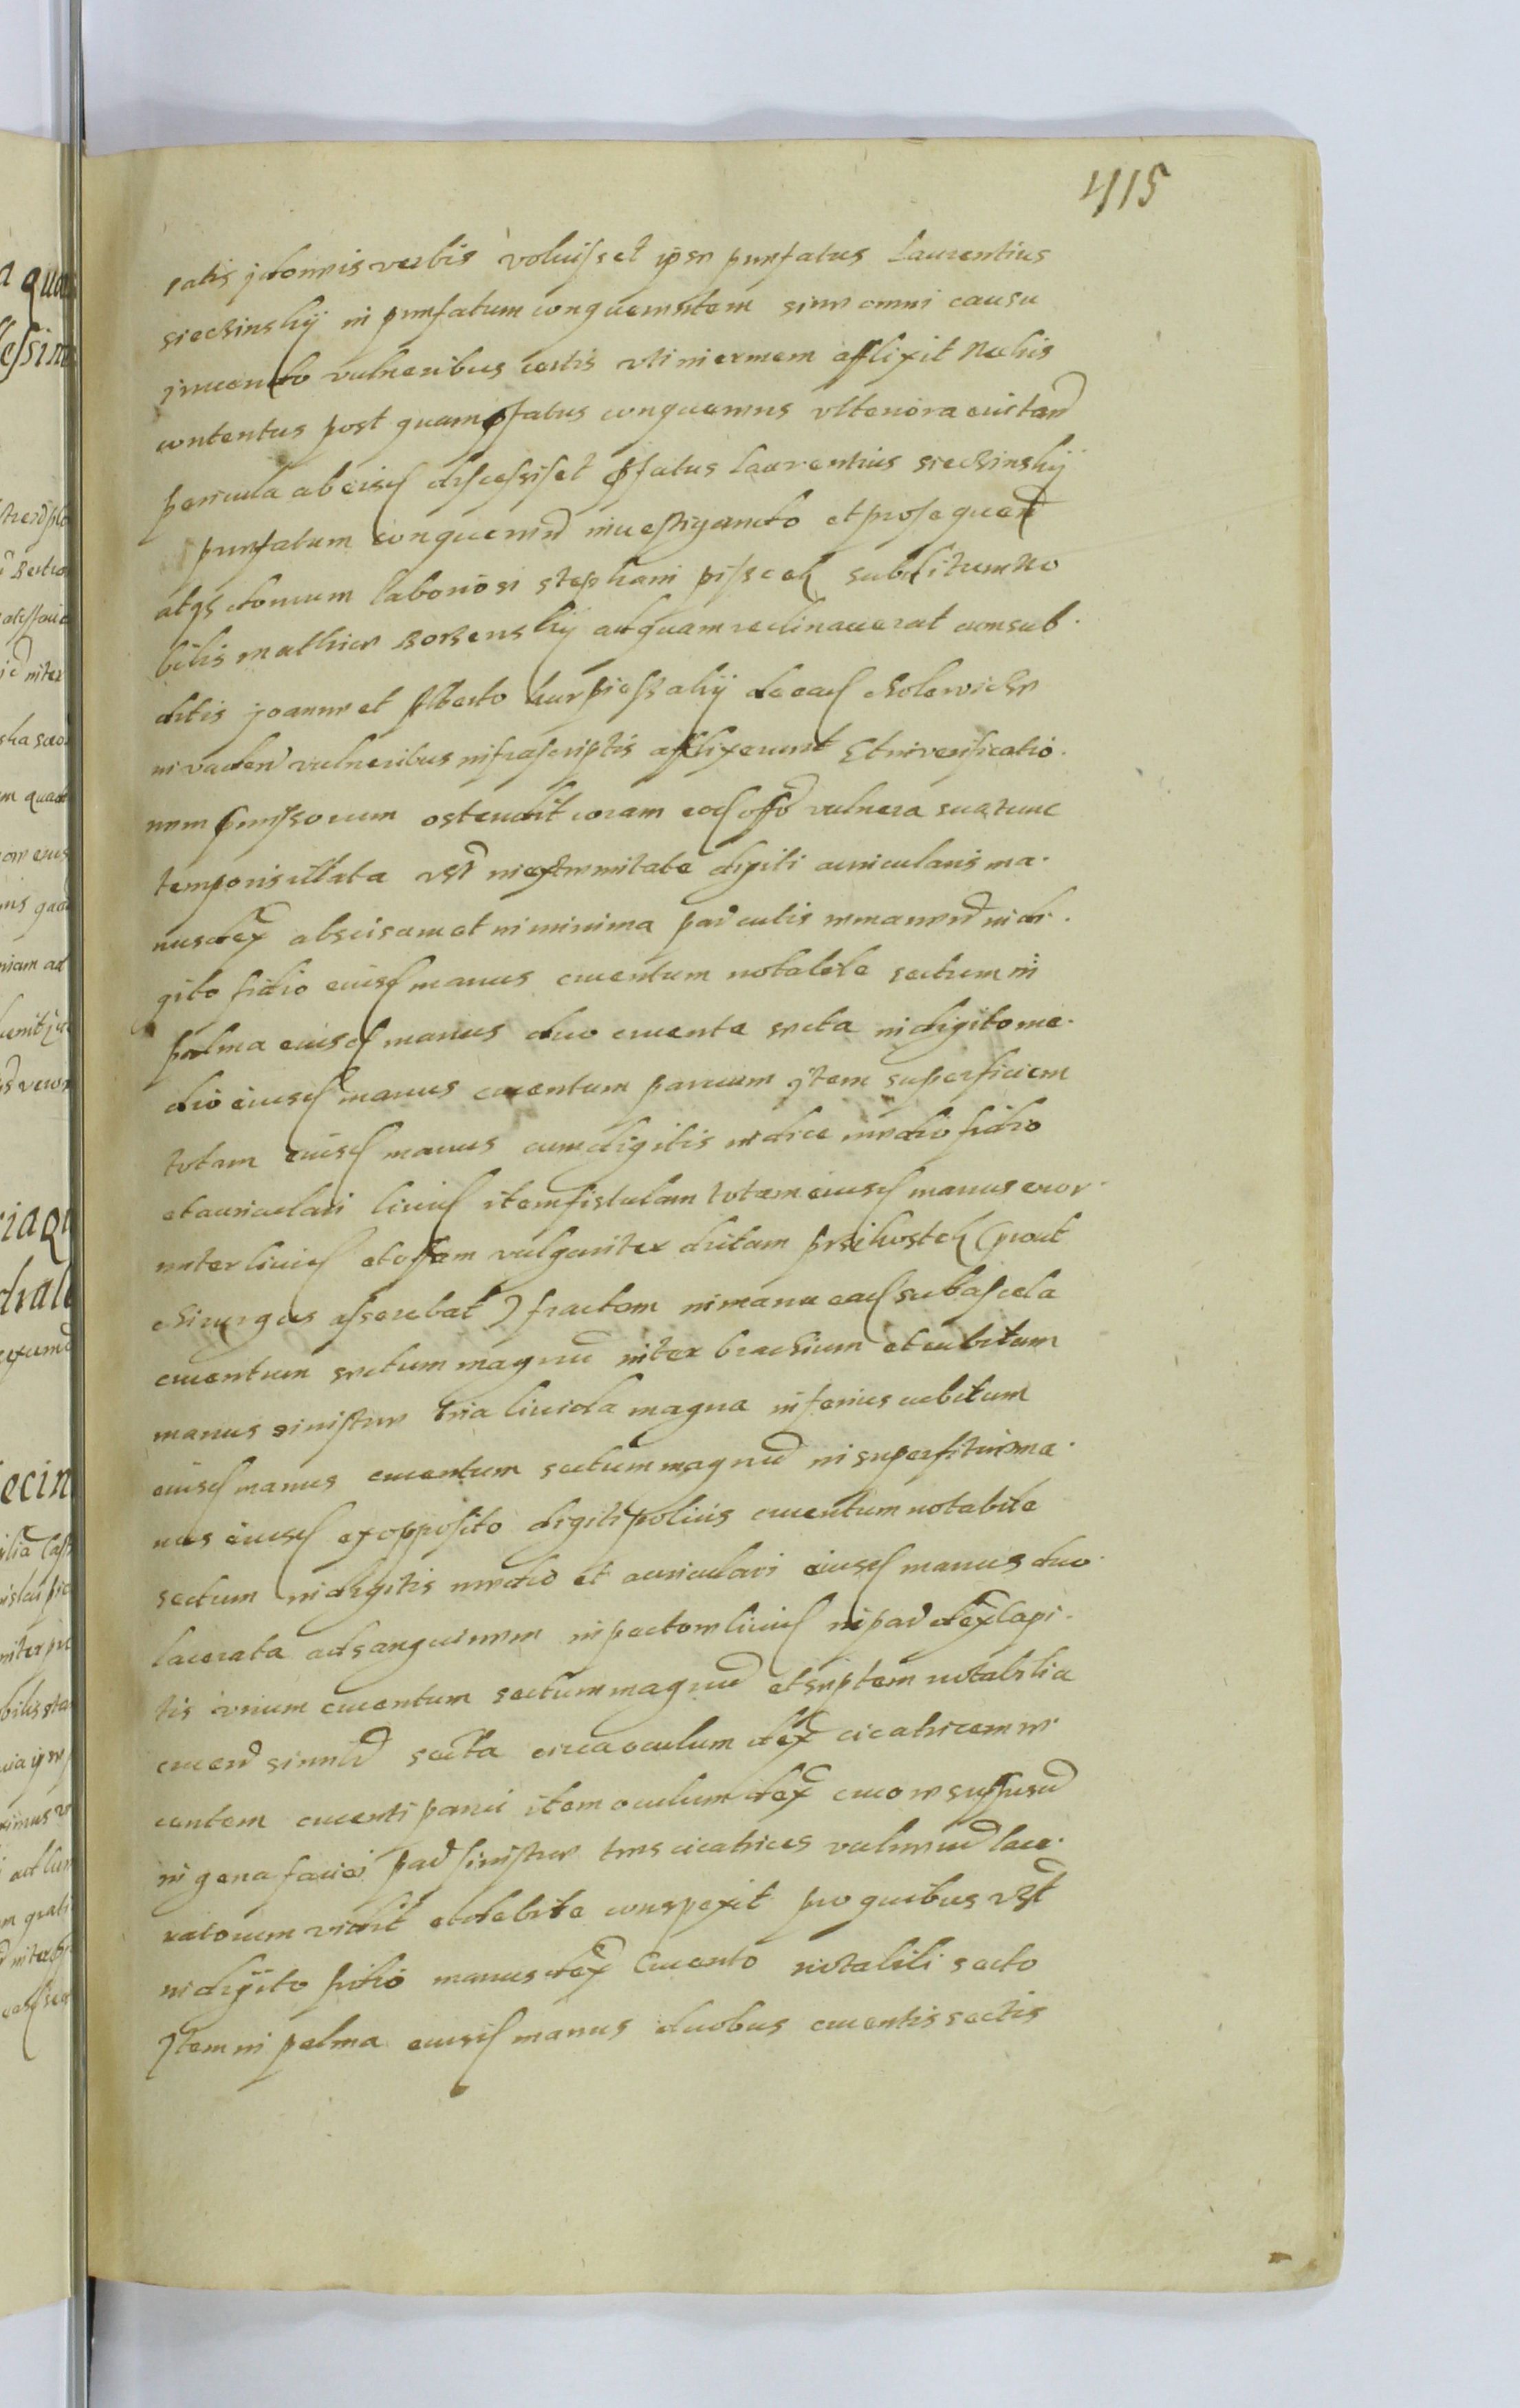 415
ratis jdoneis verbis voluisset ipse praefatus Laurentius
siechinskij in praefatum conquerentem sine omni causa
jrruendo vulneribus certis vti inermem afflixit Nechis
contentus post quam pfatus conquerens vlteriora euitand
pericula ab eisd discessisset pfatus Laurentius siechinskij
praefatum conquerend inuestigando et prosequend
atqs domum laboriosi stephani subditum No
bilis mathiae Borzenskij ad quam reclinauerat cum sub
ditis joanne et Alberto de ead cholewicze
invadend vulneribus infrascriptis afflixerunt Et in verificatio
nem praemissorum ostendit coram eod offo vulnera sua tunc
temporis illata vzt in extremitate digiti auricularis ma
nus dex abscisam et in minima par cutis remanend in di
gito fidio eiusd manus cruentum notabile sectum in
palma eiusd manus duo cruenta secta in digito me
dio eiusd manus cruentum paruum jtem superficiem
totam eiusd manus cum digitis indice medio fidio
et auriculari liuid item fistulam totam eiusd manus cruor
inter liuid et ossem vulgariter dictam (prout
chirurgus asserebat) fractam in manu ead sub ascela
cruentum sectum magnu inter brachium et cubitum
manus sinistrae tria liuida magna inferius cubitum
eiusd manus cruentum sectum magnu in superficie ma
nus eiusd ex opposito digiti polius cruentum notabile
sectum in digitis medio et auriculari eiusd manus duo
lacerata ad sanguinem in pectore liuid in par dex capi
tis vnum cruentum sectum magnu et septem notabilia
cruend secta circa oculum dex cicatricem re
centem cruenti parui item oculum dex cruore suffusu
in gena faciei par sinistrae tres cicatrices vulneru lace
ratorum vidit et debite conspexit pro quibus vzt
in digito fidio manus dex Cruento notabili secto
Jtem in palma eiusd manus duobus cruentis sectis